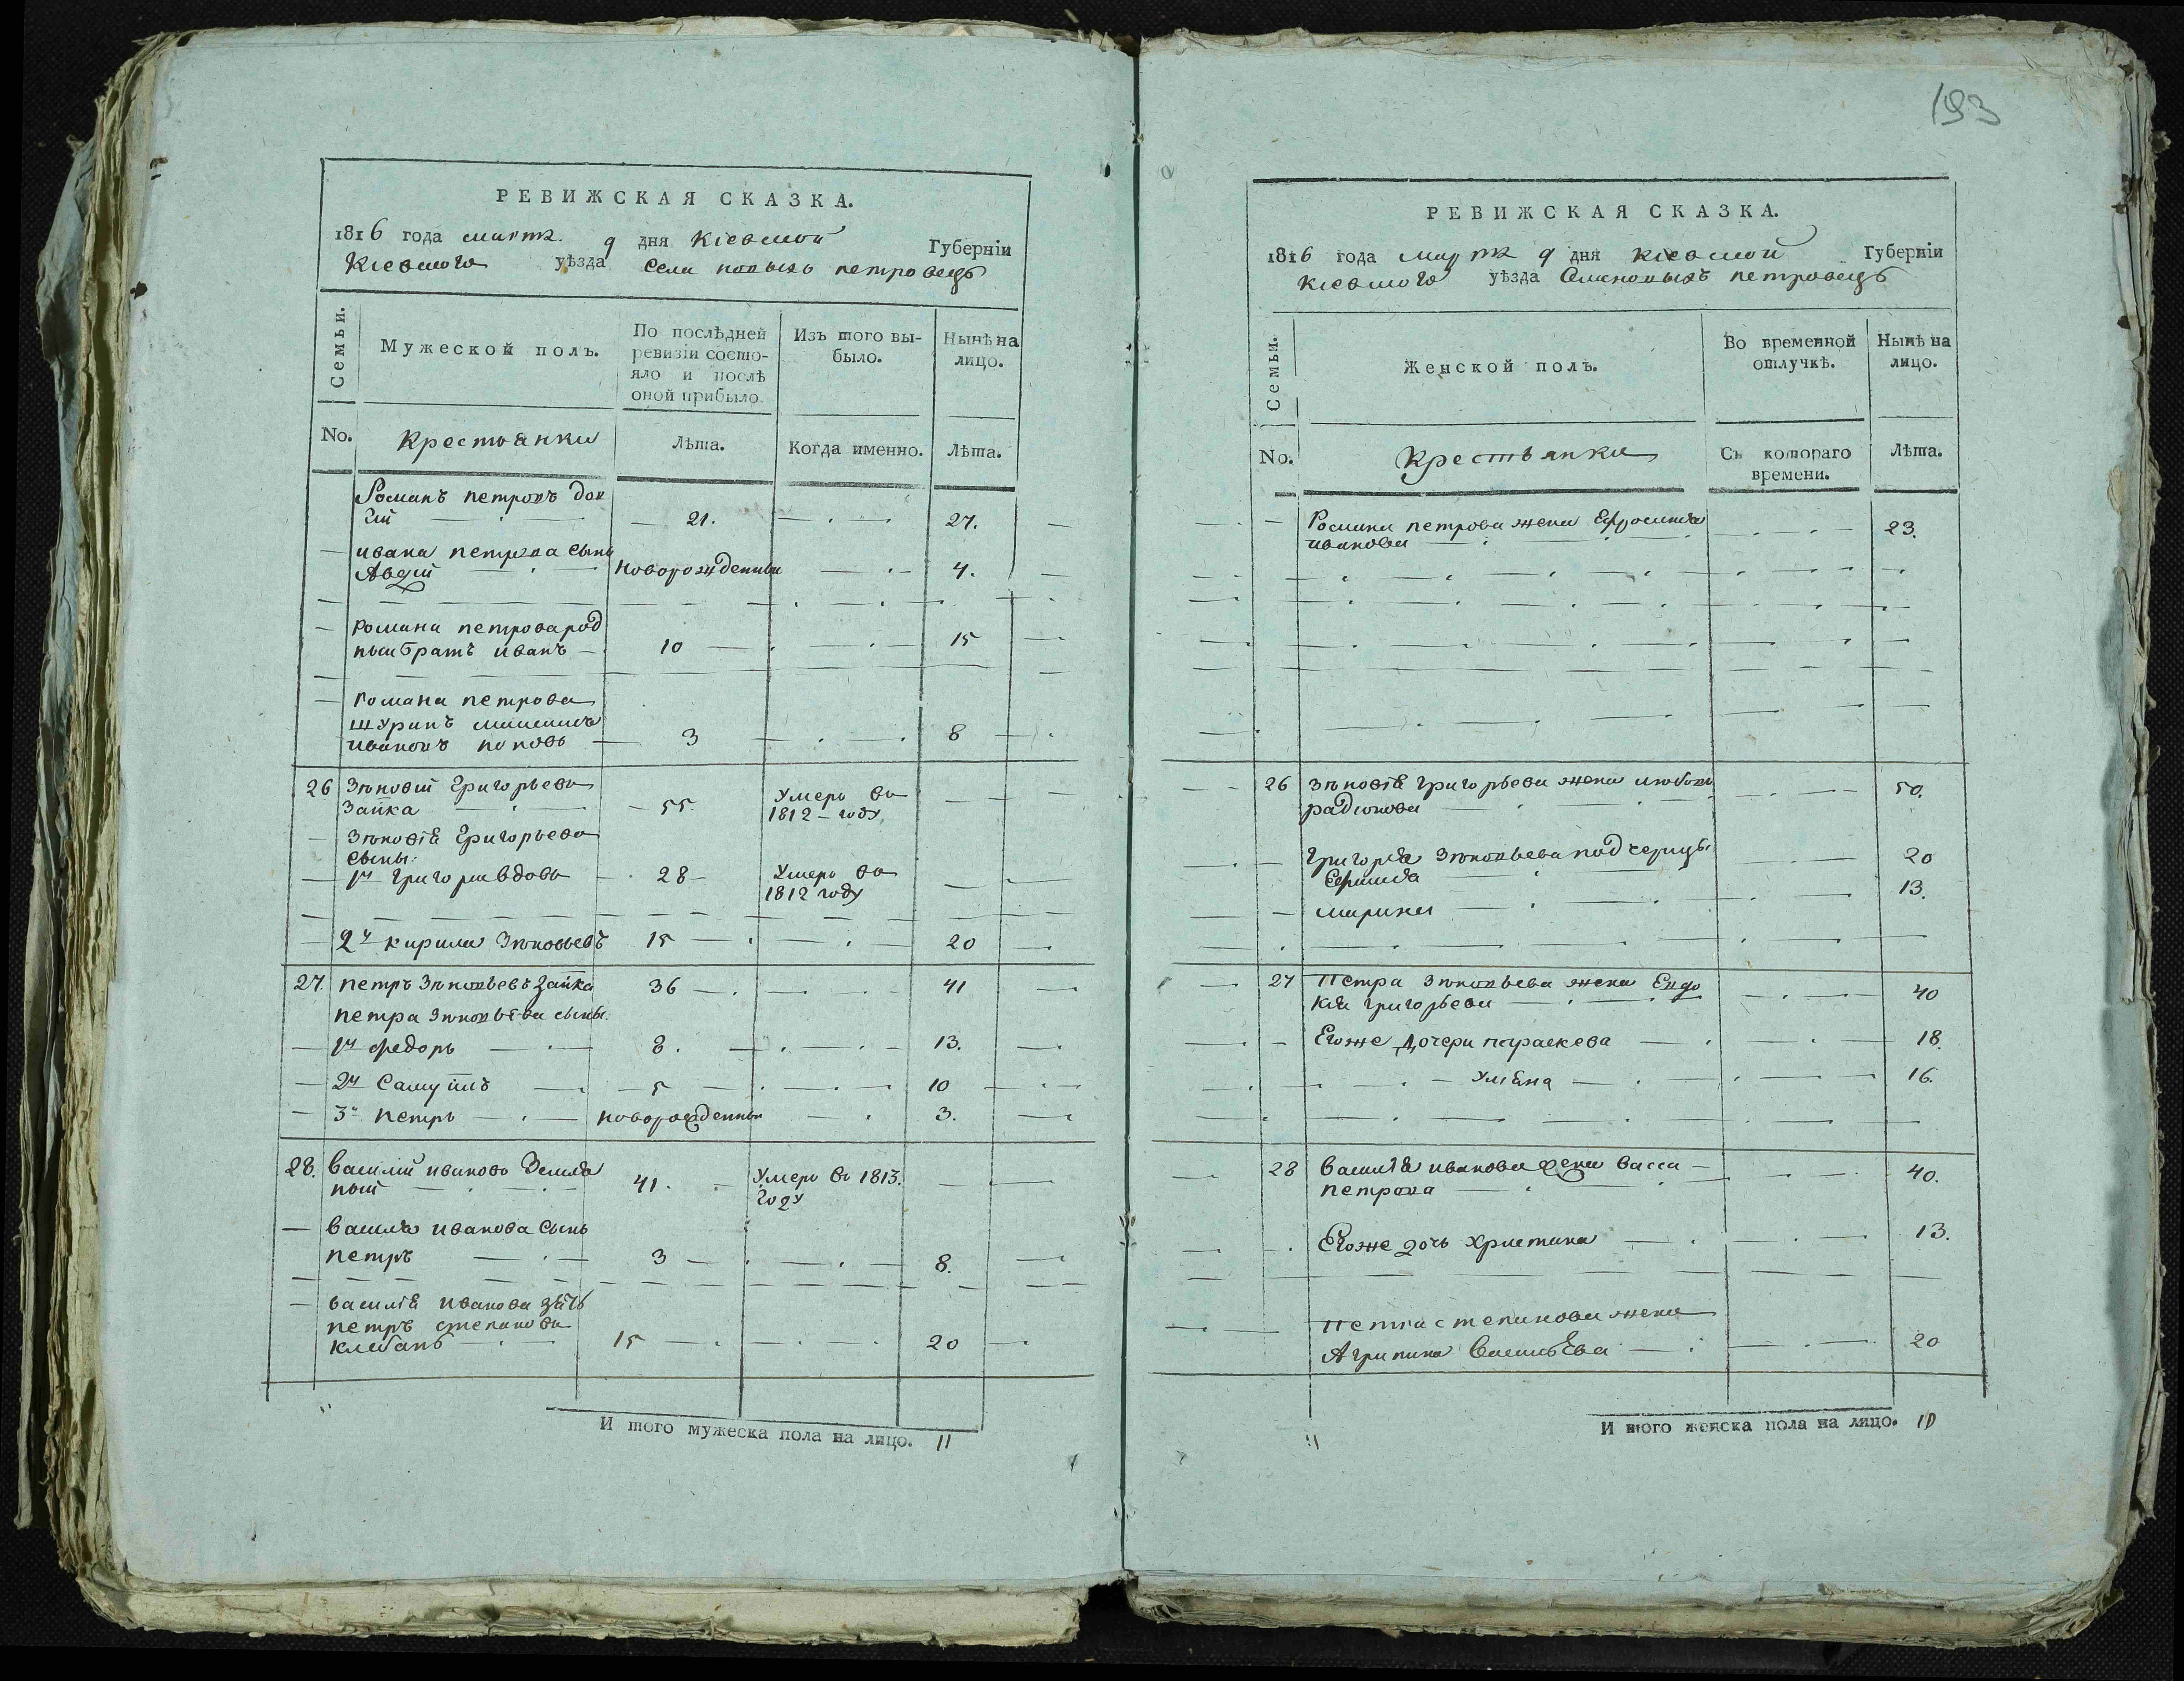 РЕВИЖСКАЯ СКАЗКА.
1816 года марта 9 дня Кіевской Губерніи
Кіевского уѣзда Села новыхъ петровецъ
Семьи. Мужеской полъ. По послѣдней ревизіи состояло и послѣ оной прибыло. Изъ того выбыло. Нынѣ на лицо.
No. Крестьянки Лѣта. Когда именно. Лѣта.
Романъ петровъ дов
гій 21. 27.
ивана петрова сынъ
Авдій новорожденный 4.
романа петрова род
ный братъ иванъ 10 15
романа петрова
шуринъ
ивановъ поповъ 3 8
26 Зѣновій Григорьевъ
Заика 55. Умеръ въ
1812 году
Зѣновія Григорьева
сыны:
1й григорий вдовъ 28 Умеръ въ
1812 году
2й кирила Зѣновьевъ 15 20
27. петръ Зѣновьевъ Заика 36 41
петра Зѣновьева сыны:
1й федоръ 8. 13.
2й Самуилъ 5 10
3й петръ новорожденный 3.
28. Василій ивановъ Земля
ный 41. Умеръ въ 1813.
году
Василя иванова сынъ
петръ 3 8.
василія иванова зять
петръ степановъ
клебанъ 15 20
И того мужеска пола на лицо. 11
193
РЕВИЖСКАЯ СКАЗКА.
1816 года марта 9 дня Кіевской Губерніи
Кіевского уѣзда Села новыхъ петровецъ
Семьи. Женской полъ. Во временной отлучкѣ. Нынѣ на лицо.
No. Крестьянки Съ котораго времени. Лѣта.
Романа петрова жена Ефросиния
иванова 23.
26 Зѣновія григорьева жена любовь
радионова 50.
григорія Зѣновьева подчерицы
20
марина 13.
27 Петра Зѣновьева жена Евдо
кия григорьева 40
Егоже дочери параскева 18.
Уліяна 16.
28 Василія иванова жена васса
петрова 40.
Егоже дочь христина 13.
Петра степанова жена
Агрипина Васильева 20
И того женска пола на лицо. 10